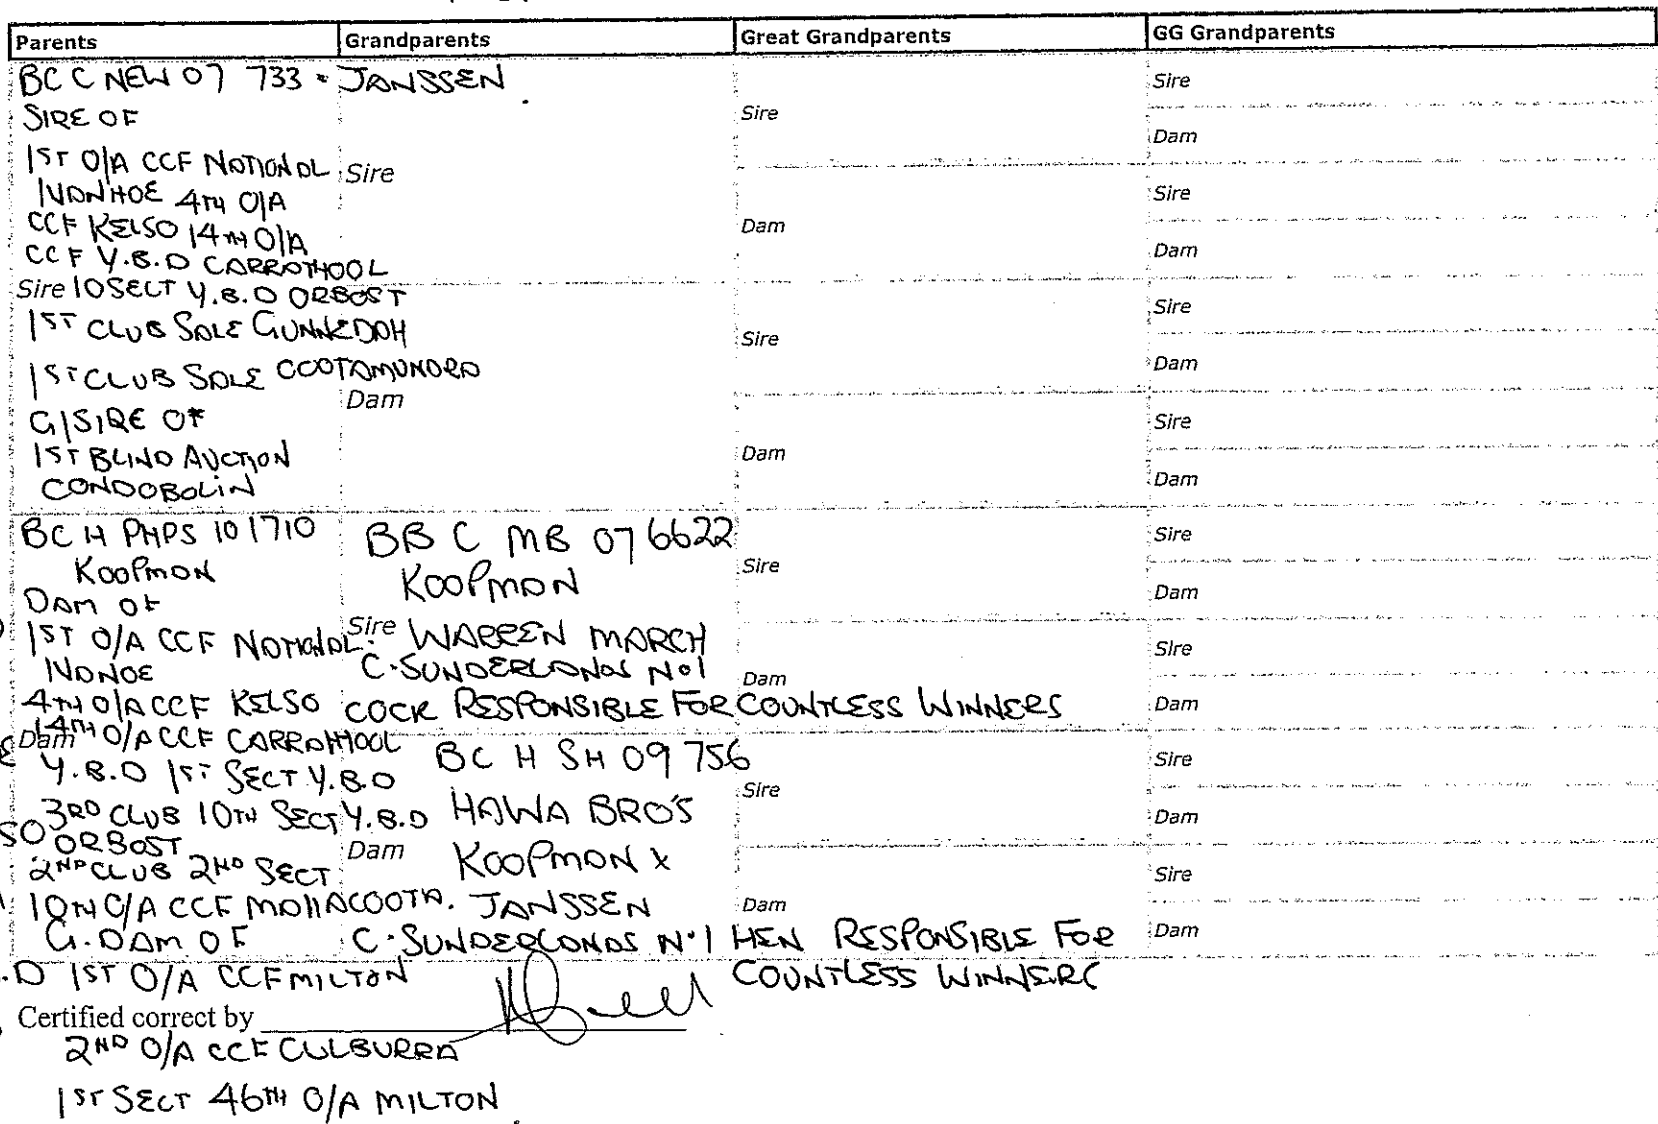 Parents Grandparents Great Grandparents GG Grandparents
BC C NEW 07 733 - JANSSEN
SIRE OF
1ST O/A CCF NATIONAL
IVANHOE 4TH O/A
CCF KELSO 14TH O/A
CCF Y.B.D CARRATHOOL
Sire 10 SECT Y.B.D ORBOST
1ST CLUB SALE GUNNEDAH
1ST CLUB SALE COOTAMUNDRA
G/SIRE OF
1ST BLIND AUCTION
CONDOBOLIN
Sire
Dam
Sire
Dam
Sire
Dam
Sire
Dam
Sire
Dam
Sire
Dam
Sire
Dam
BC H PHPS 10 1710
KOOPMAN
DAM OF
1ST O/A CCF NATIONAL
IVANOE
4TH O/A CCF KELSO
14TH O/A CCF CARRATHOOL
Dam
Y.B.D 1ST SECT Y.B.D
3RD CLUB 10TH SECT Y.B.D
ORBOST
2ND CLUB 2ND SECT
10TH O/A CCF MALLACOOTA.
G.DAM OF
1ST O/A CCF MILTON
BB C MB 07 6622
KOOPMAN
Sire WARREN MARCH
C.SUNDERLANDS No1
COCK RESPONSIBLE FOR COUNTLESS WINNERS
BC H SH 09 756
HAWA BRO'S
Dam KOOPMAN X
JANSSEN
C.SUNDERLANDS No1 HEN RESPONSIBLE FOR
COUNTLESS WINNERS
Sire
Dam
Sire
Dam
Sire
Dam
Sire
Dam
Sire
Dam
Sire
Dam
Certified correct by
2ND O/A CCF CULBURRA
1ST SECT 46TH O/A MILTON